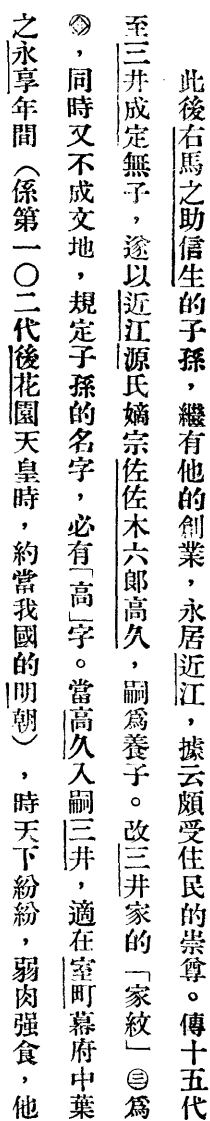 此後右馬之助信生的子孫，繼有他的創業，永居近江，據云頗受住民的崇尊。傳十五代
至三井成定無子，遂以近江源氏嫡宗佐佐木六郎高久，嗣爲養子。改三井家的「家紋」㊂爲
，同時又不成文地，規定子孫的名字，必有「高」字。當高久入嗣三井，適在室町幕府中葉
之永享年間（係第一〇二代後花園天皇時，約當我國的明朝），時天下紛紛，弱肉强食，他